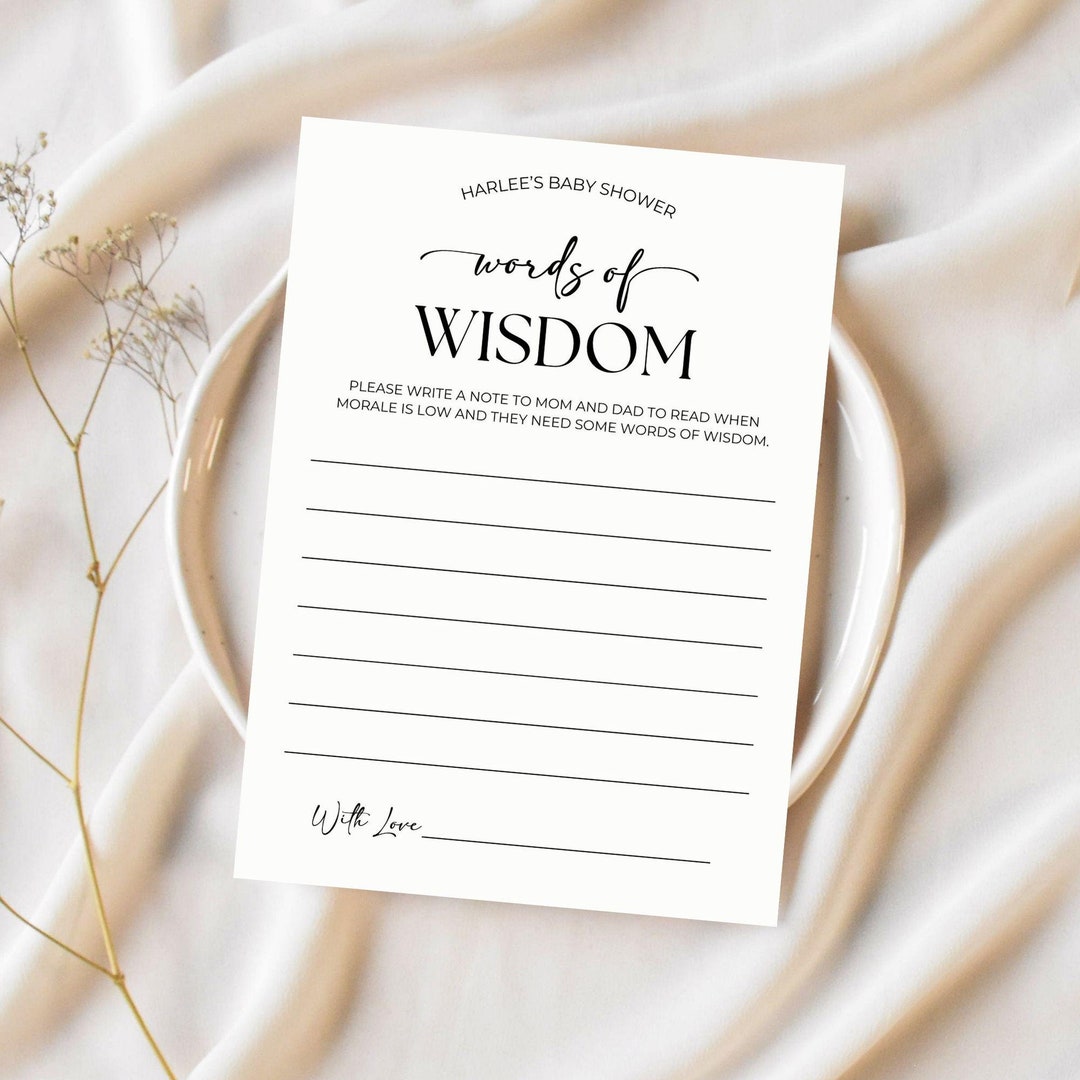 HARLEE'S BABY SHOWER
words of
WISDOM
PLEASE WRITE A NOTE TO MOM AND DAD TO READ WHEN
MORALE IS LOW AND THEY NEED SOME WORDS OF WISDOM.
With Love